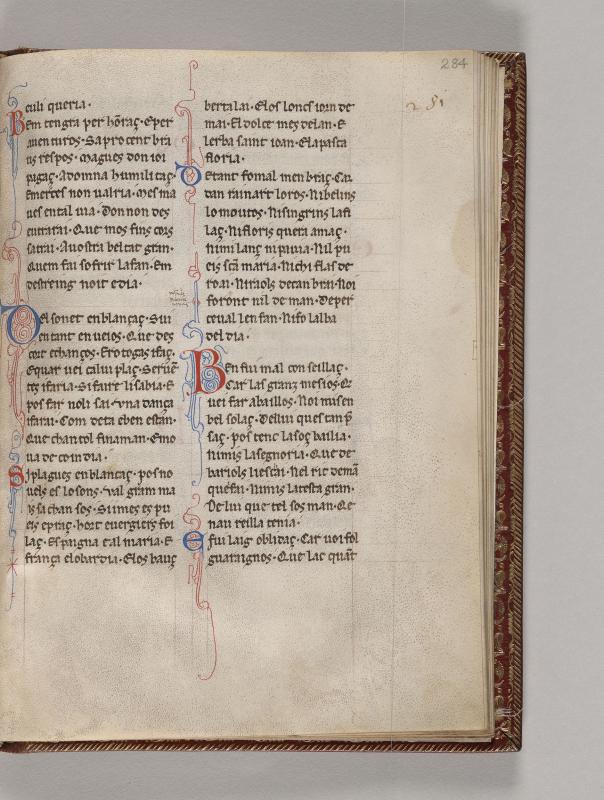 284
281
culi queria.
Bem tengra per honraç. Eper
auenturos. Sa pro cent bra
us respos. Magues don ioi
pagaç. Adomna humilitaç.
Emerces non ualria. Mes ma
ues cental uia. Don non des
eurarai. Que mos fins cors
satrai. Auostra beltat gran.
Quem fai sofrir lafan. Em
destreing noit e dia.
Del sonet enblançaç. Sui
en tant en ueios. Que des
cort echanços. Ero togas ifaç.
Equar uei calui plaç. Seruē
tes ifaria. Si faire lisabia. E
pos far noli sai. Vna dança
ifarai. Com deta eben estan.
Que chantol finaman. Eno
ua de coindia.
Siplagues enblancaç. pos no
uels es lo sons. Val gram ma
is sa chan sos. Si umes es pu
eis
Laç. Espaigna eal maria. E
frança elobardia. Elos bauç
bertalai. Elos loncs iorn de
mai. El dolce mes delan. E
lerba saint ioan. Elapasca
floria.
Detant fomal men braç. Ca
dan rainart loros. Ni belins
lo moutos. Nisingrins lafi
laç. Nifloris quera amaç.
Nimi lanç nipauia. Nil pu
eis scā maria. Nichi flas de
roai. Niraols decan brai. Noi
foront nil de man. Deper
ceual len fan. Nifo lalba
del dia.
Ben fui mal con seillaç.
Car las granz mesios. Qe
uei far abaillos. Noi misen
bel solaç. Deliui ques tan ꝑ
saç. pos tenc lasoç bailia.
Nimis lasegnoria. Que de
bariols Nel ric demā
que fai. Nimis latesta gran.
De lui que tel sos man. Qe
nau reilla tenia.
E fui laig oblidaç. Car uoi fol
guaraignos. Que lac quāt